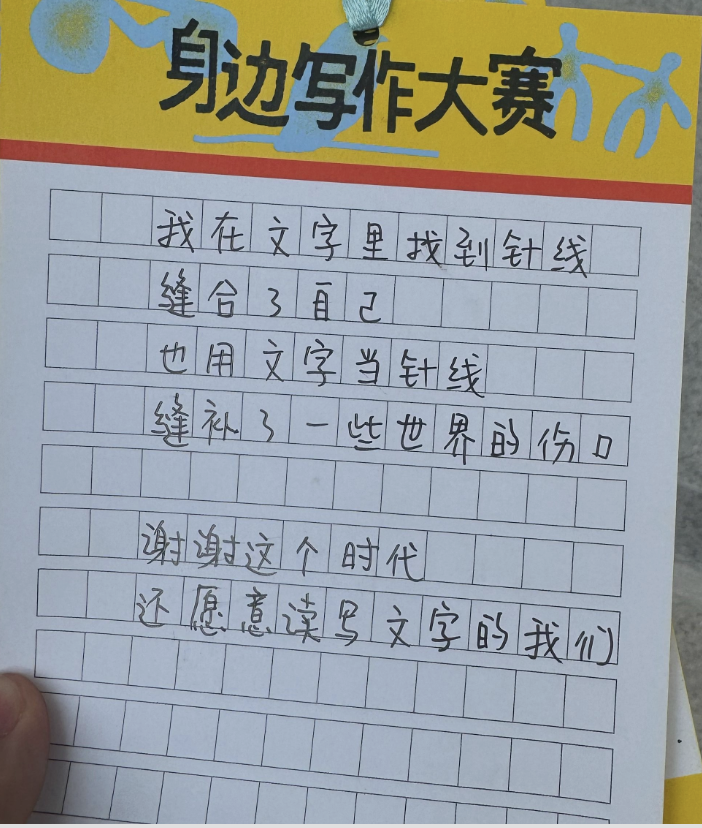 身边写作大赛
我在文字里找到针线
缝合了自己
也用文字当针线
缝补了一些世界的伤口
谢谢这个时代
还愿意读写文字的我们